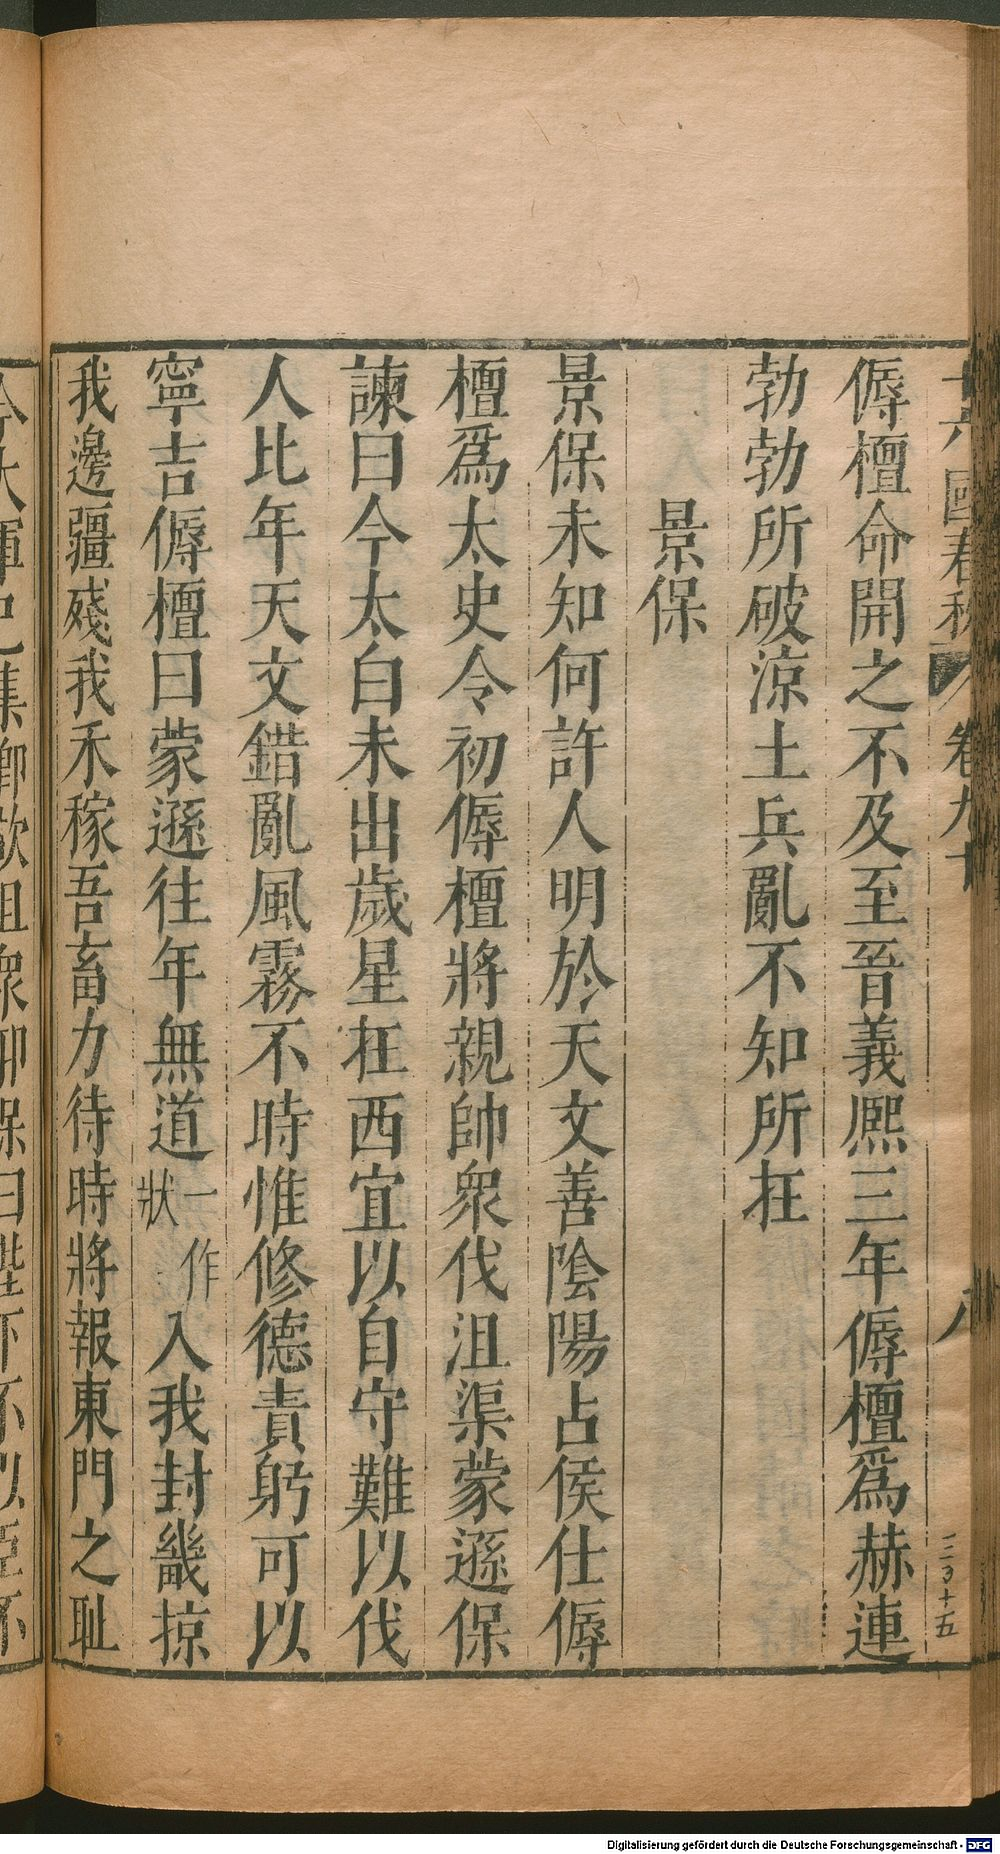 十六國春秋 卷九十 八 三百十五
傉檀命開之不及至晉義熈三年傉檀爲赫連
勃勃所破涼土兵亂不知所在
景保
景保未知何許人明於天文善陰陽占侯仕傉
檀爲太史令初傉檀將親帥衆伐沮渠蒙遜保
諫曰今太白未出歲星在西宜以自守難以伐
人比年天文錯亂風霧不時惟修德責躬可以
寧吉傉檀曰蒙遜往年無道一作狀入我封畿掠
我邊疆殘我禾稼吾畜力待時將報東門之耻
今大軍已集卿欲沮衆邪保曰陛下不以臣不
Digitalisierung gefördert durch die Deutsche Forschungsgemeinschaft - DFG